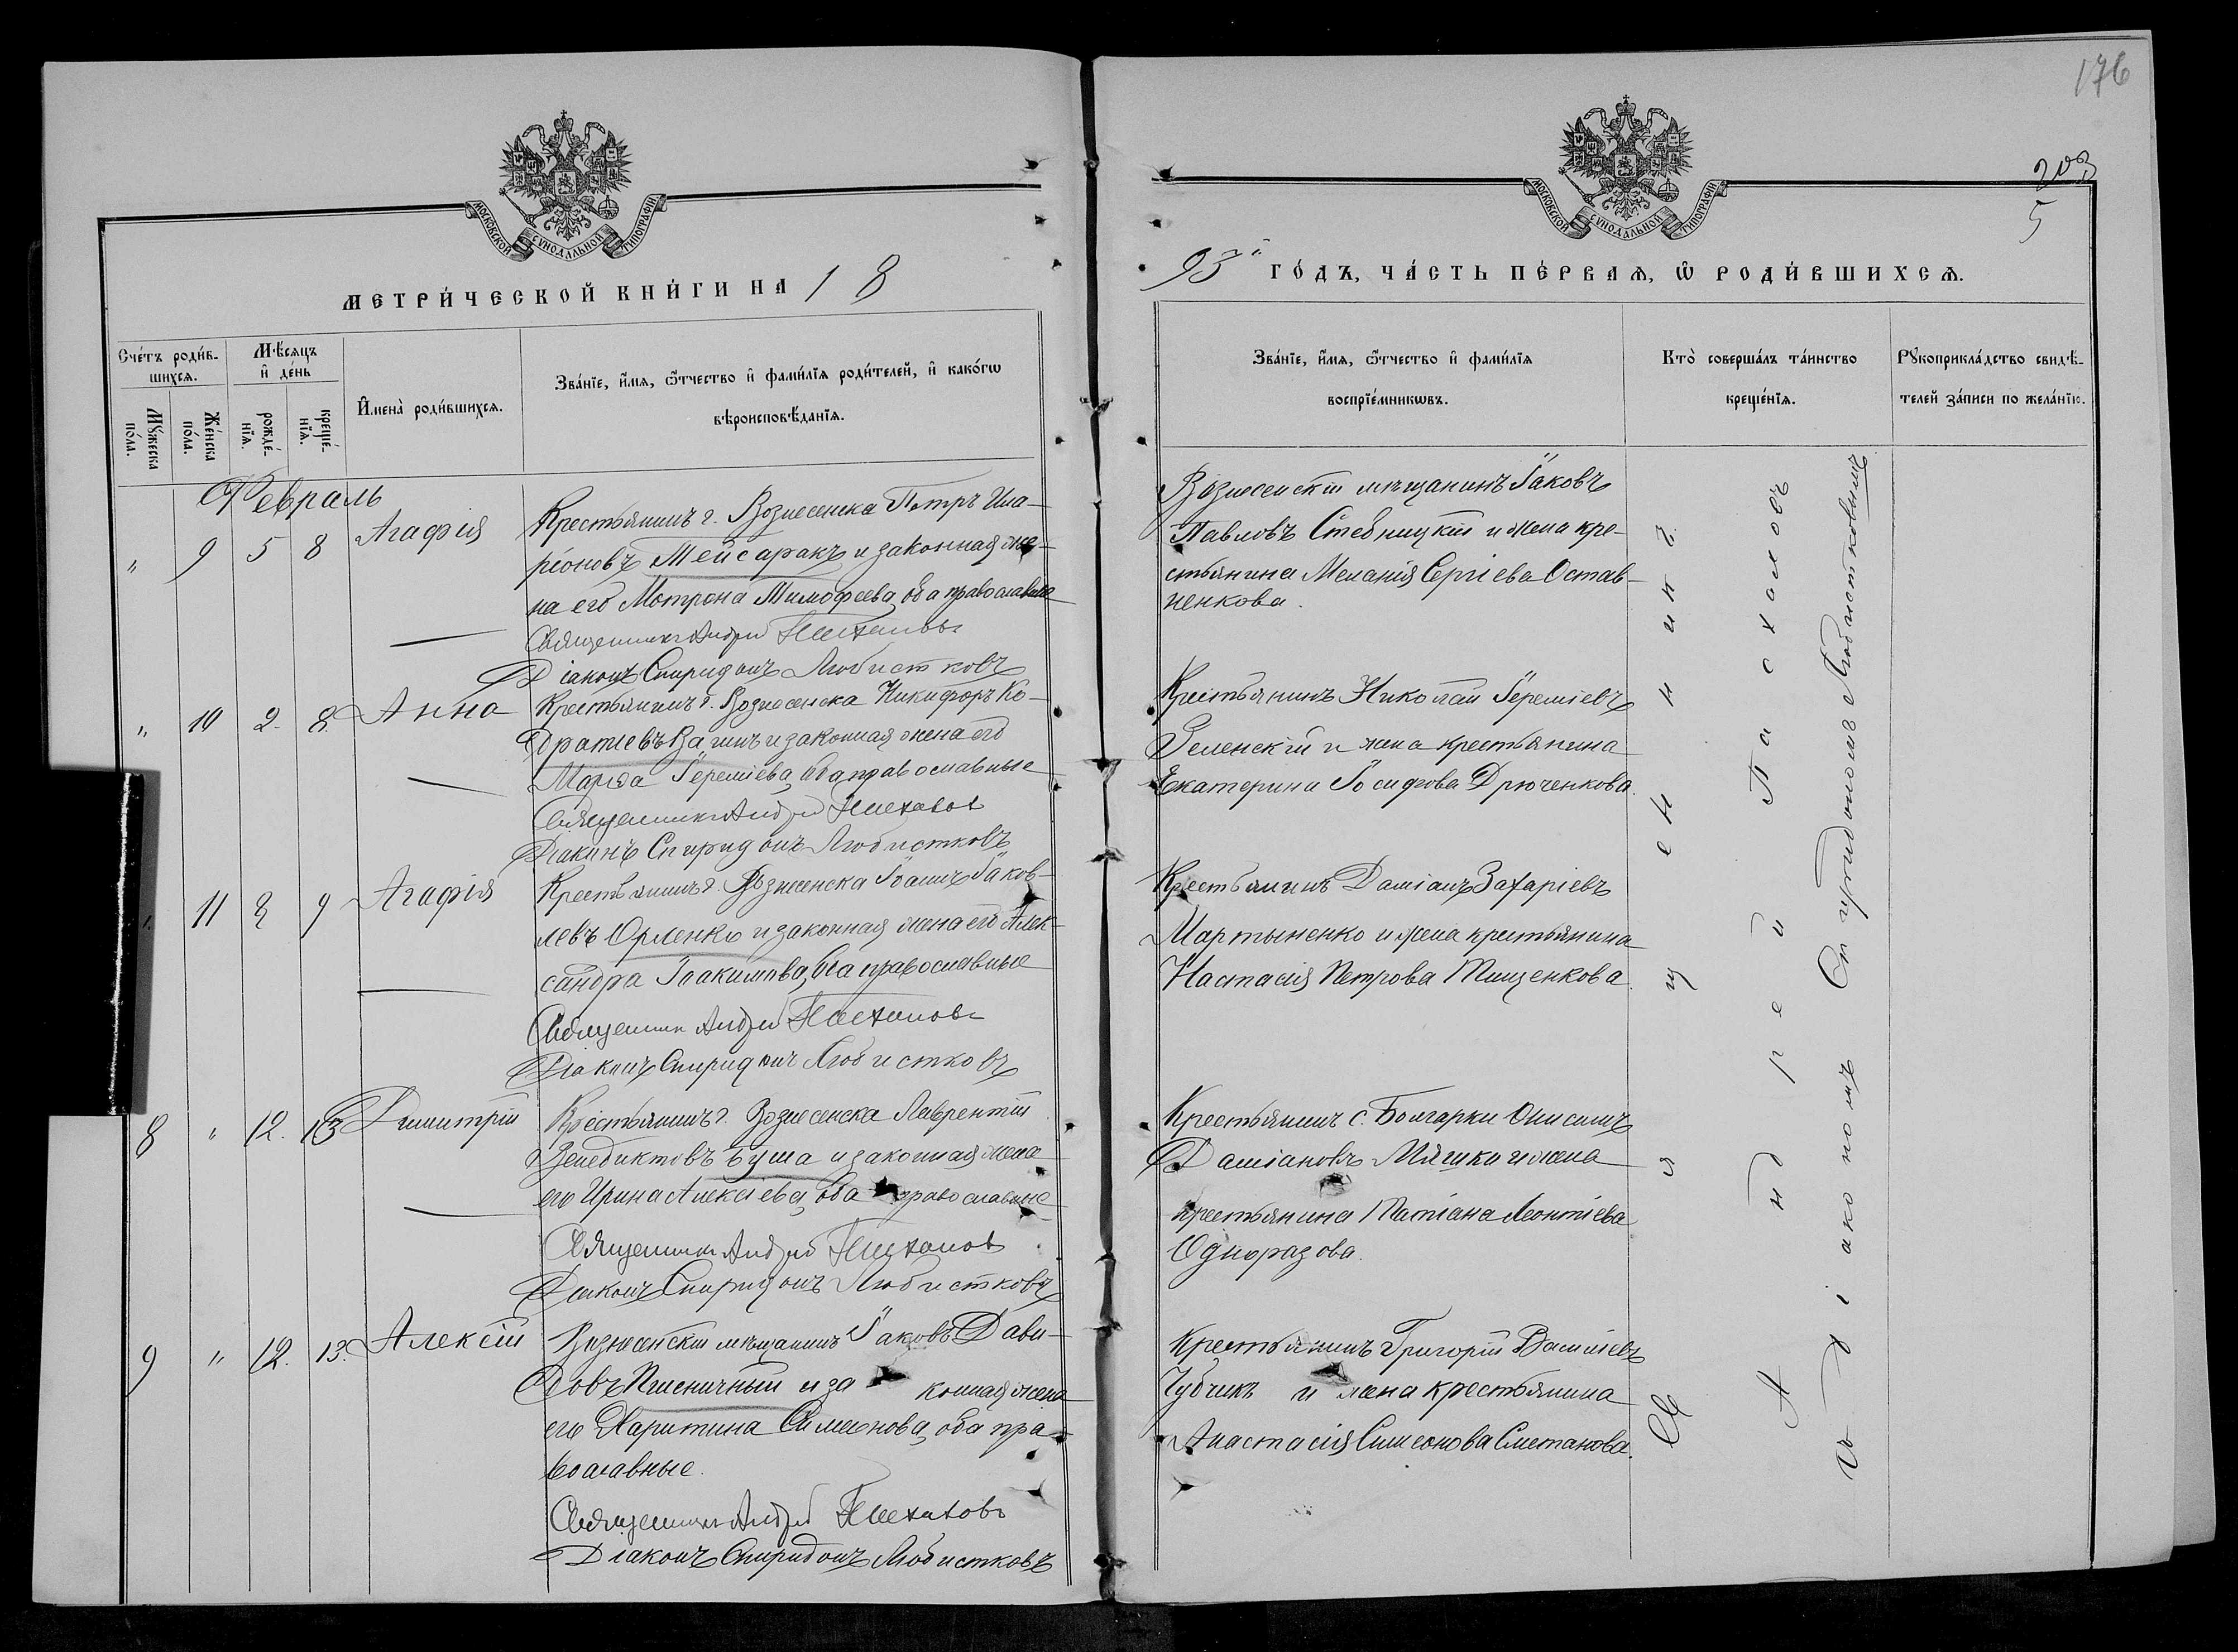 176
203
5
МОСКОВСКОЙ СѴНОДАЛЬНОЙ ТИПОГРАФІИ
МОСКОВСКОЙ СѴНОДАЛЬНОЙ ТИПОГРАФІИ
МЕТРИ́ЧЕСКОЙ КНИ́ГИ НА 18
93й ГО́ДЪ, ЧА́СТЬ ПЕ́РВАѦ, Ѡ҆ РОДИ́ВШИХСѦ.
Сче́тъ роди́в-
шихсѧ.
Мѹ́жеска
по́ла.
Же́нска
по́ла.
Мѣ́сѧцъ
и҆ де́нь
рожде́-
нїѧ.
креще́-
нїѧ.
И҆мена̀ роди́вшихсѧ.
Зва́нїе, и҆́мѧ, ѻ҆́тчество и҆ фами́лїѧ роди́телей, и҆ како́гѡ
вѣроисповѣ́данїѧ.
Зва́нїе, и҆́мѧ, ѻ҆́тчество и҆ фами́лїѧ
воспрїе́мникѡвъ.
Кто̀ соверша́лъ та́инство
креще́нїѧ.
Рꙋкоприкла́дство свидѣ́-
телей за́писи по жела́нїю.
Февраль
" 9 5 8 Агафія
Крестьянинъ г. Вознесенска Петръ Ила-
ріоновъ Мейсаракъ и законная же-
на его Мотрона Тимофеева, оба православные
Священникъ Андрей
Діаконъ Спиридонъ Любистковъ
Вознесенскій мѣщанинъ Іаковъ
Павловъ Стебницкій и жена кре-
стьянина Меланія Сергіева Остав-
ненкова.
" 10 2. 8. Анна
Крестьянинъ г. Вознесенска Никифоръ Ко-
дратіевъ Вагинъ и законная жена его
Марѳа Іереміева, оба православные
Священникъ Андрей
Діаконъ Спиридонъ Любистковъ
Крестьянинъ Николай Іереміевъ
Зеленскій и жена крестьянина
Екатерина Іосифова Дрюченкова.
" 11 8 9 Агафія
Крестьянинъ г. Вознесенска Іоаннъ Іаков-
левъ Орленко и законная жена его Алек-
сандра Іоакимова, оба православные
Священникъ Андрей
Діаконъ Спиридонъ Любистковъ
Крестьянинъ Даміанъ Захаріевъ
Мартыненко и жена крестьянина
Настасія Петрова Тищенкова.
8 " 12. 13 Димитрій
Крестьянинъ г. Вознесенска Лаврентій
Венедиктовъ Буша и законная жена
его Ирина Алексіева, оба православные
Священникъ Андрей
Діаконъ Спиридонъ Любистковъ
Крестьянинъ с. Болгарки Онисимъ
Даміановъ Мяшки и жена
крестьянина Татіана Леонтіева
Одноразова.
9 " 12. 13. Алексій
Вознесенскій мѣщанинъ Іаковъ Дави-
довъ Пшеничный и законная жена
его Харитина Симеонова, оба пра-
вославные.
Священникъ Андрей
Діаконъ Спиридонъ Любистковъ
Крестьянинъ Григорій Василіевъ
Чубчикъ и жена крестьянина
Анастасія Симеонова Сметанова.
Священникъ
Андрей
съ діакономъ Спиридономъ Любистковымъ